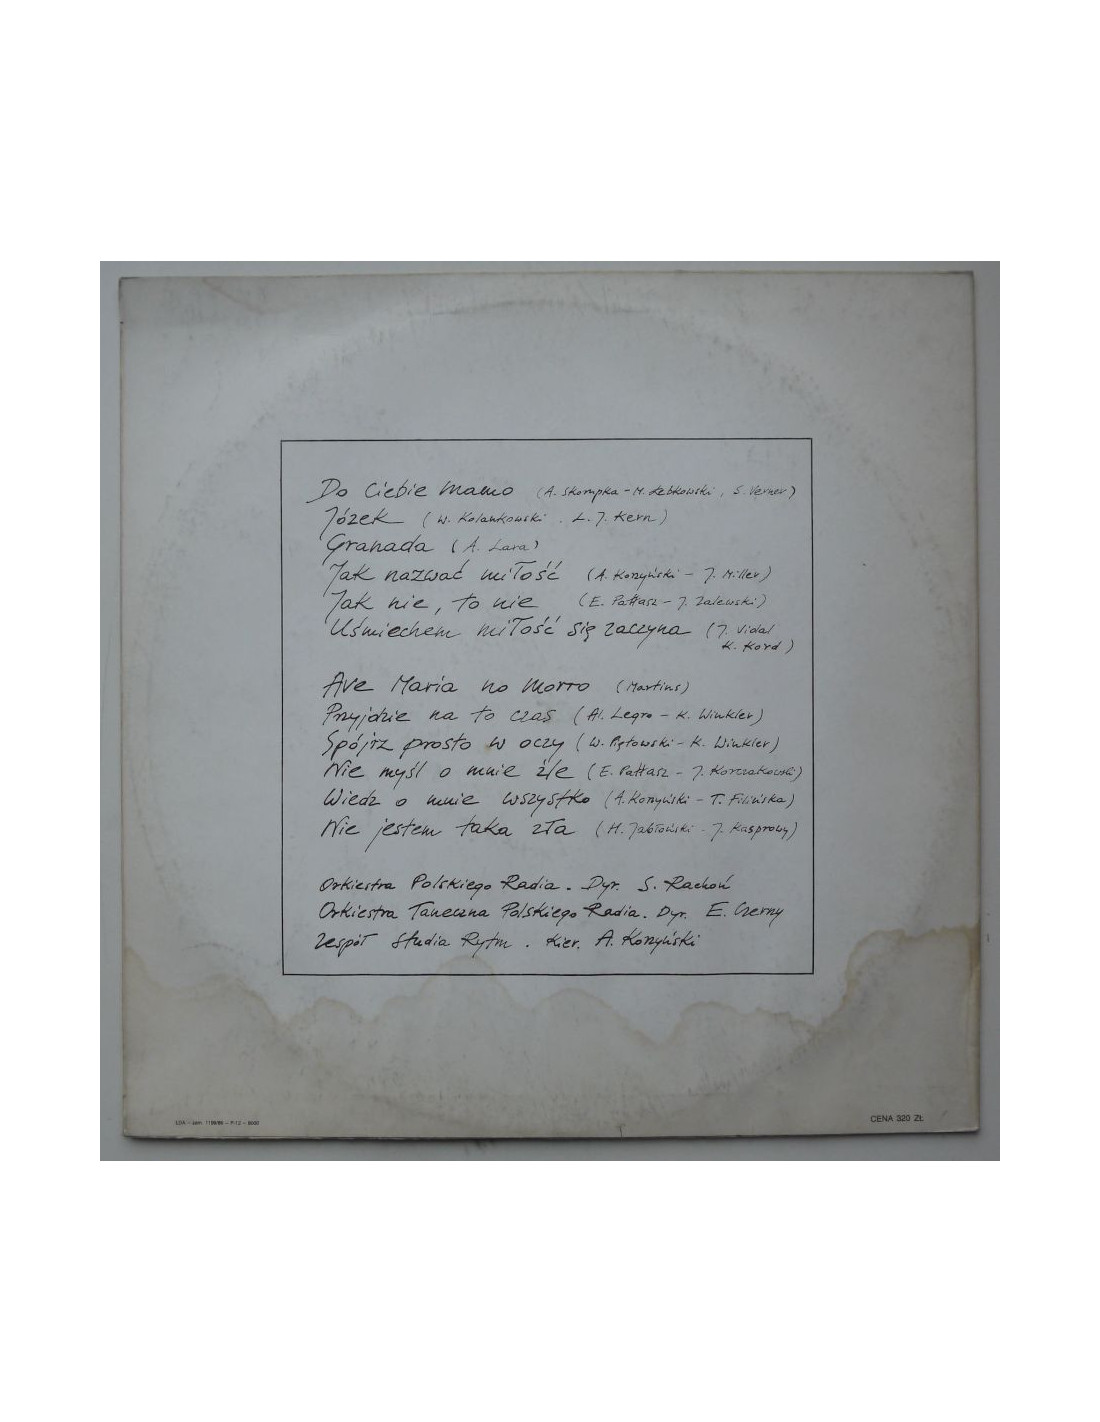 Do Ciebie Mamo (A. Skorupka - M. Łebkowski, S. Verner)
Józek (W. Kolankowski. L. J. Kern)
Granada (A. Lara)
Jak nazwać miłość (A. Korzyński - J. Miller)
Jak nie, to nie (E. Pałłasz - J. Zalewski)
Uśmiechem miłość się zaczyna (J. Vidal
K. Kord)
Ave Maria no Morro (Martins)
Przyjdzie na to czas (Al. Legro - K. Winkler)
Spójrz prosto w oczy (W. Piętowski - K. Winkler)
Nie myśl o mnie źle (E. Pałłasz - J. Korczakowski)
Wiedz o mnie wszystko (A. Korzyński - T. Filińska)
Nie jestem taka zła (H. Jabłoński - J. Kasprowy)
Orkiestra Polskiego Radia. Dyr. S. Rachoń
Orkiestra Taneczna Polskiego Radia. Dyr. E. Czerny
Zespół Studia Rytm. Kier. A. Korzyński
CENA 320 ZŁ